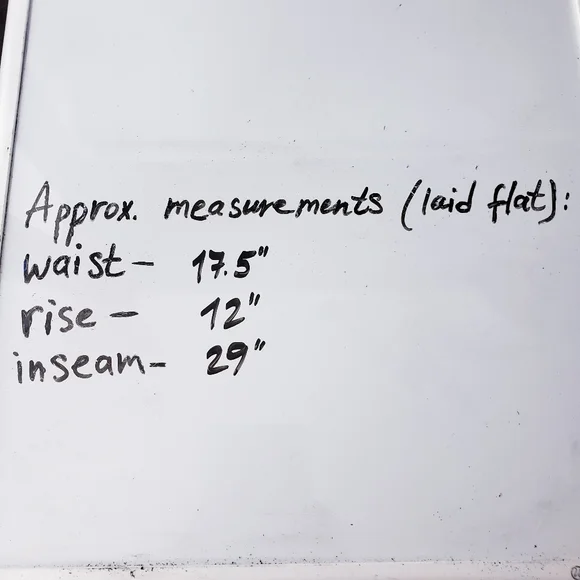 Approx. measurements (laid flat):
waist- 17.5"
rise - 12"
inseam- 29"